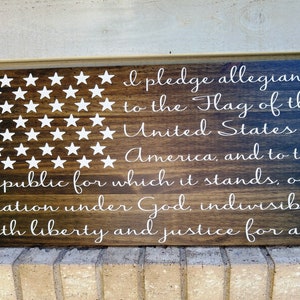 I pledge allegian
to the Flag of th
United States
America, and to t
public for which it stands, o
ation under God, indivisib
th liberty and justice for a